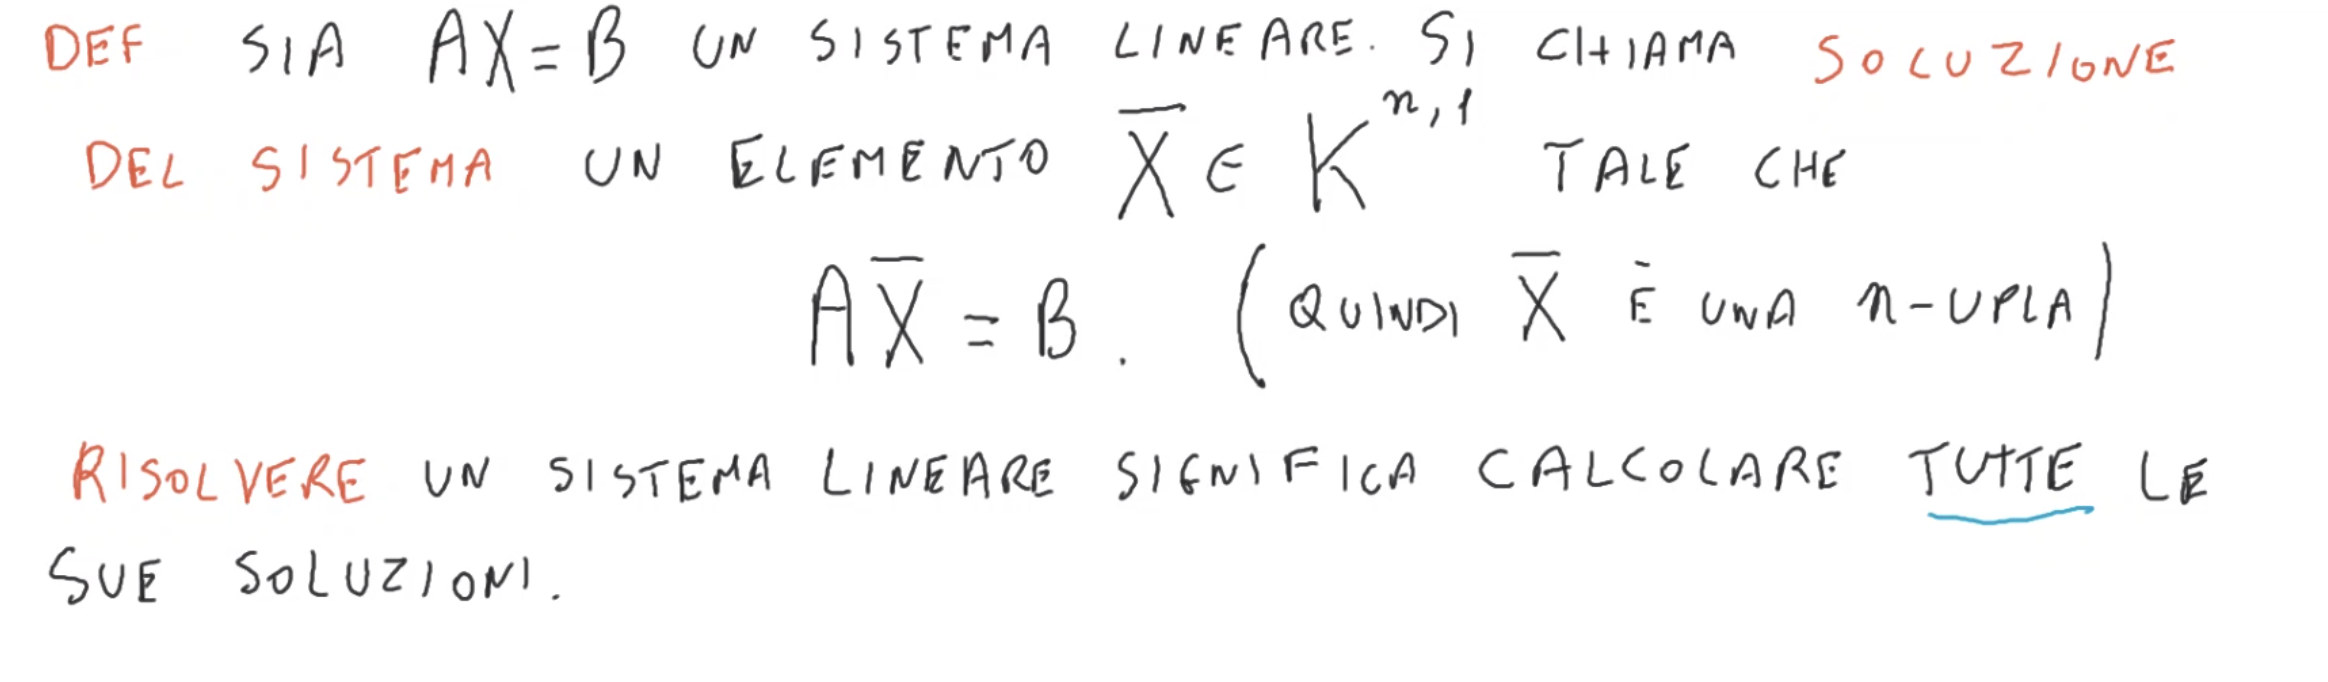 DEF SIA AX=B UN SISTEMA LINEARE. SI CHIAMA SOLUZIONE
DEL SISTEMA UN ELEMENTO X̅ ∈ K^{n,1} TALE CHE
AX̅ = B. (QUINDI X̅ È UNA n-UPLA)
RISOLVERE UN SISTEMA LINEARE SIGNIFICA CALCOLARE TUTTE LE
SUE SOLUZIONI.